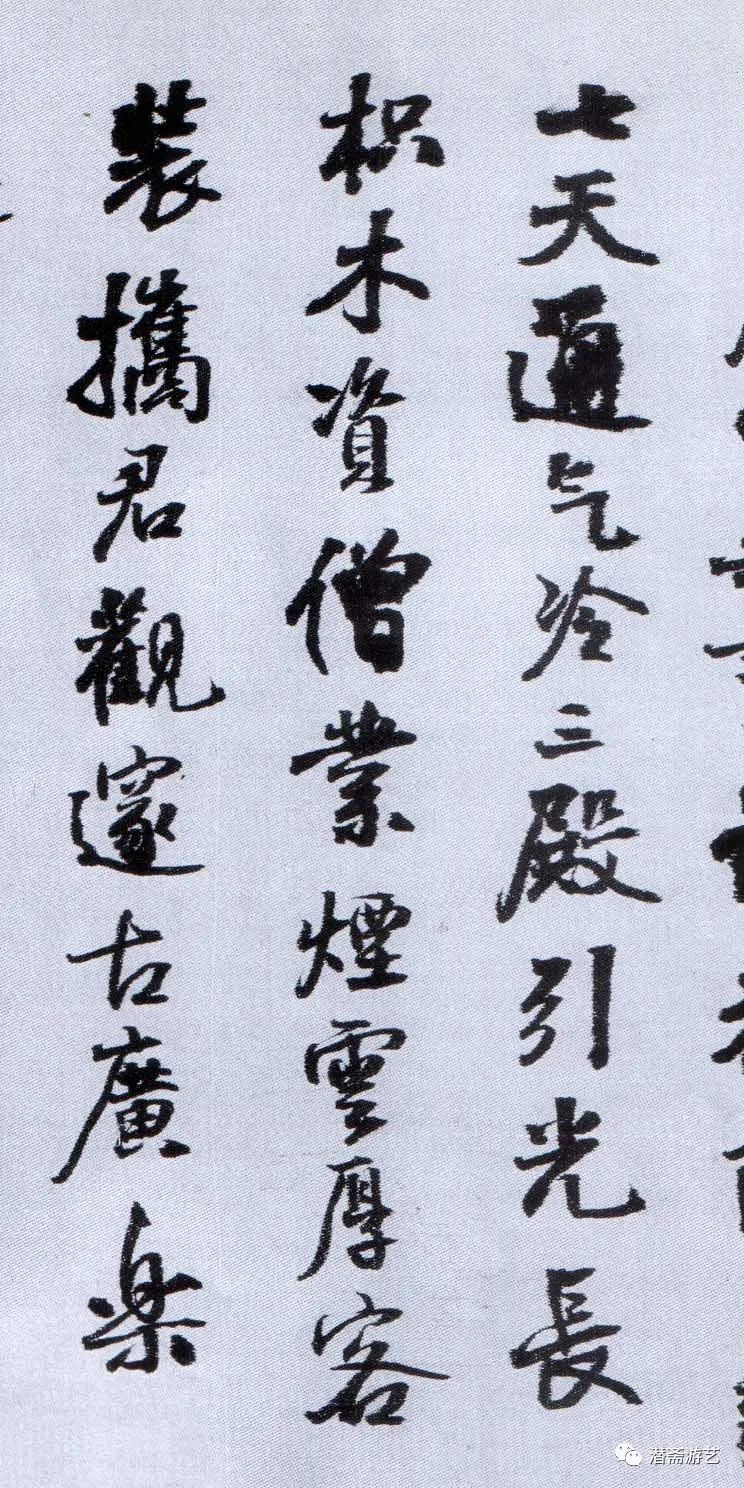 七天通气冷三殿引光長
枳木資僧業煙雲厚客
裝攜君觀邃古廣樂
潜斋游艺